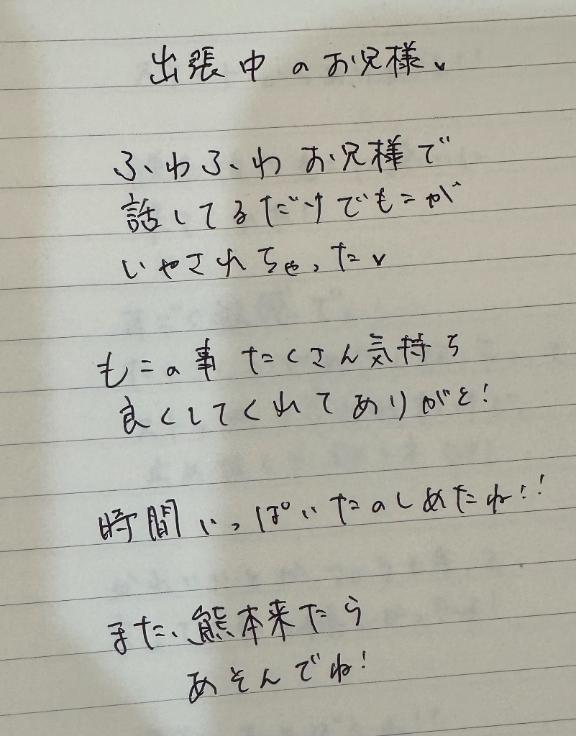 出張中のお兄様、
ふわふわお兄様で
話してるだけでもこが
いやされちゃった、
もこの事たくさん気持ち
良くしてくれてありがと!
時間いっぱいたのしめたね!!
また、熊本来たら
あそんでね!